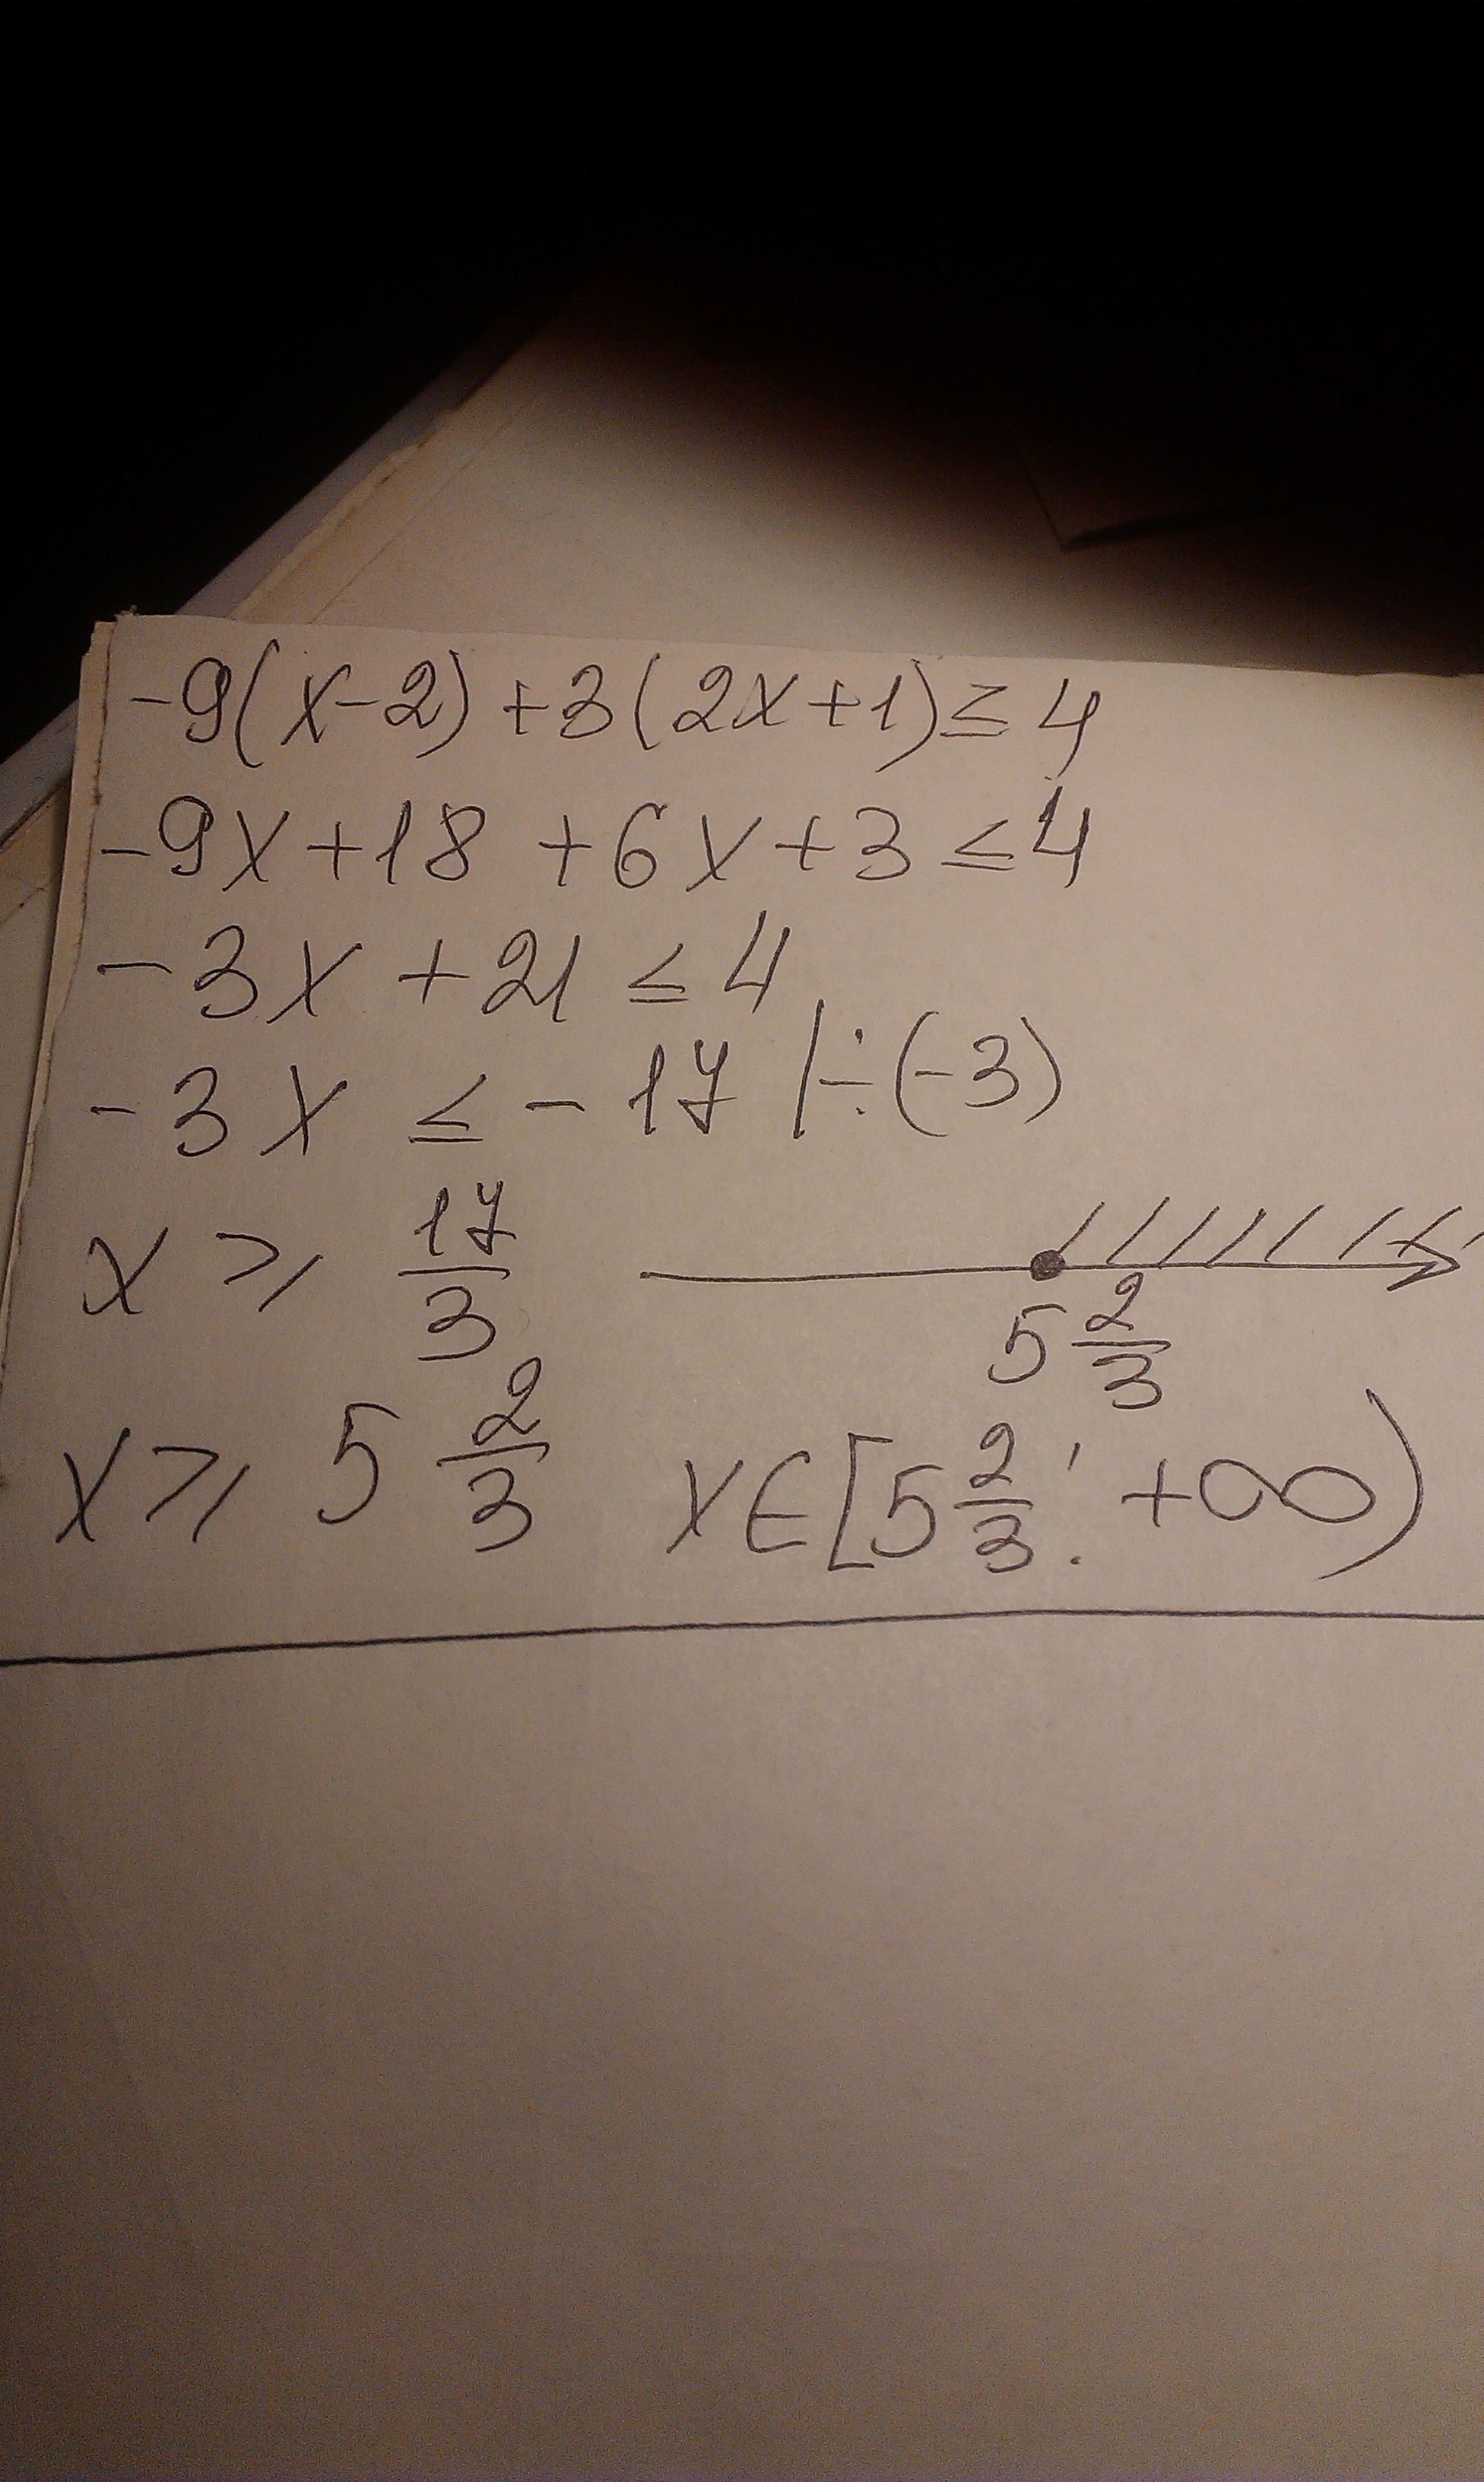 -9(x-2)+3(2x+1)≤4
-9x+18+6x+3≤4
-3x+21≤4
-3x≤-17 |÷(-3)
x⩾17/3
5 2/3
x⩾5 2/3 x∈[5 2/3; +∞)